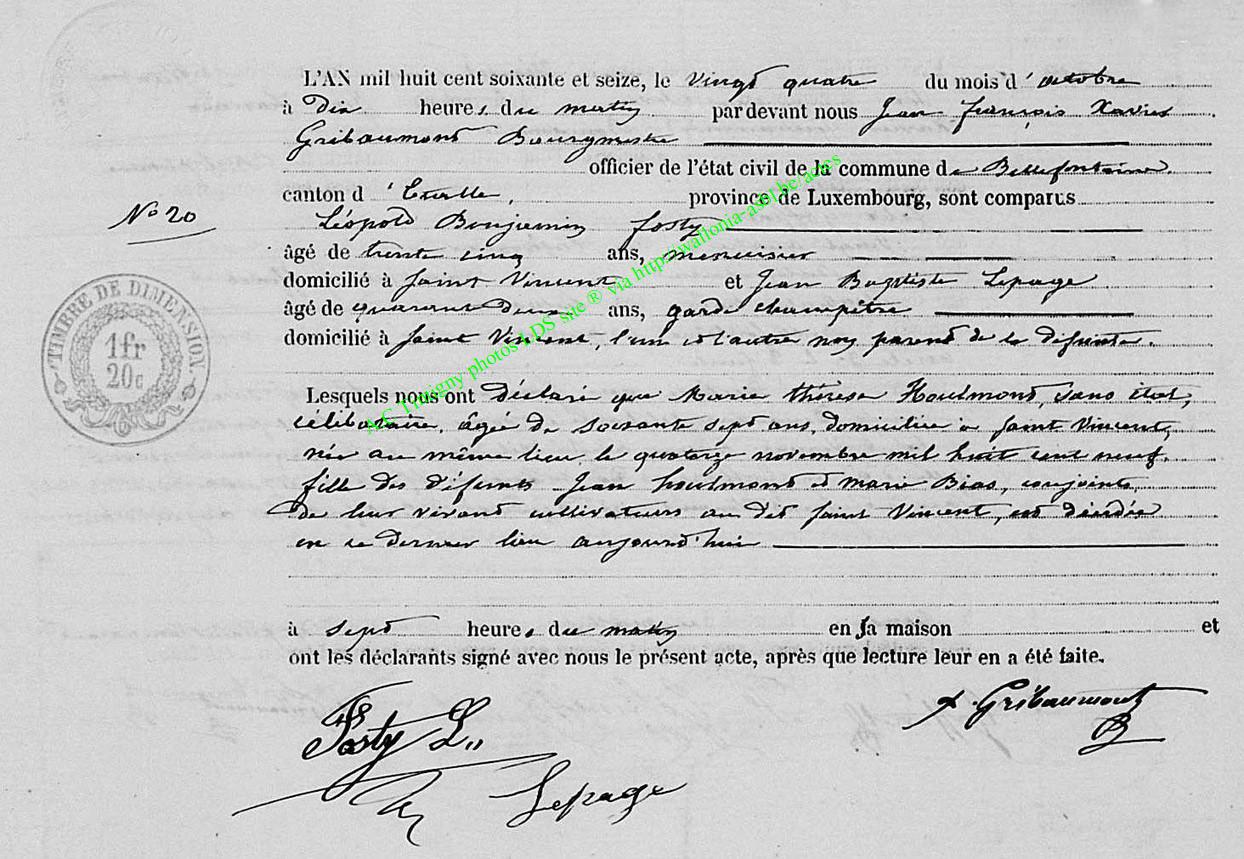 L'AN mil huit cent soixante et seize, le vingt quatre du mois d'octobre
à dix heures du matin par devant nous Jean François Xavier
Gribaumont Bourgmestre
officier de l'état civil de la commune de Bellefontaine,
canton d'Etalle, province de Luxembourg, sont comparus
N° 20
Léopold Benjamin Fosty
âgé de trente cinq ans, menuisier
domicilié à Saint Vincent et Jean Baptiste Lepage
âgé de quarante deux ans, garde champêtre
domicilié à Saint Vincent, l'un et l'autre non parent de la défunte.
TIMBRE DE DIMENSION
1fr
20c
Lesquels nous ont déclaré que Marie thérèse Houlmont, sans état,
célibataire, âgée de soixante sept ans, domiciliée à Saint Vincent,
née au même lieu le quatorze novembre mil huit cent neuf,
fille des défunts Jean houlmont et marie Bias, conjoints,
de leur vivant cultivateurs au dit Saint Vincent, est décédée
en ce dernier lieu aujourd'hui
à sept heures du matin en sa maison et
ont les déclarants signé avec nous le présent acte, après que lecture leur en a été faite.
Fosty L.
Gribaumont
Lepage
A.C. Tintigny photos LDS site ® via http://wallonia-asbl.be/actes